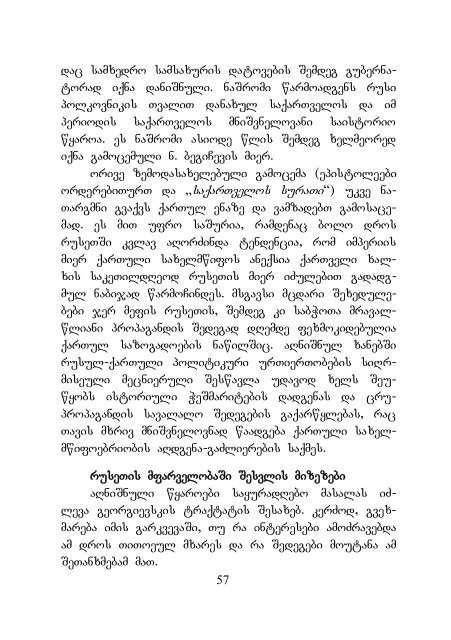 დაც სამხედრო სამსახურის დატოვების შემდეგ გუბერნა-
ტორად იქნა დანიშნული. ნაშრომი წარმოადგენს რუსი
პოლკოვნიკის თვალით დანახულ საქართველოს და იმ
პერიოდის საქართველოს მნიშვნელოვანი საისტორიო
წყაროა. ეს ნაშრომი ასიოდე წლის შემდეგ ხელმეორედ
იქნა გამოცემული ნ. ბეგიჩევის მიერ.
ორივე ზემოდასახელებული გამოცემა (ეპისტოლეები
ორდერებითურთ და „საქართველოს სურათი“) უკვე ნა-
თარგმნი გვაქვს ქართულ ენაზე და ვამზადებთ გამოსაცე-
მად. ეს მით უფრო საშურია, რამდენაც ბოლო დროს
რუსეთში კვლავ აღორძინდა ტენდენცია, რომ იმპერიის
მიერ ქართული სახელმწიფოს ანექსია ქართველი ხალ-
ხის საკეთილდღეოდ რუსეთის მიერ იძულებით გადადგ-
მულ ნაბიჯად წარმოჩინდეს. მსგავსი მცდარი შეხედულე-
ბები ჯერ მეფის რუსეთის, შემდეგ კი საბჭოთა მრავალ-
წლიანი პროპაგანდის შედეგად დღემდე ფეხმოკიდებულია
ქართულ საზოგადოების ნაწილშიც. აღნიშნულ ხანებში
რუსულ-ქართული პოლიტიკური ურთიერთობების სიღრ-
მისეული მეცნიერული შესწავლა უდავოდ ხელს შეუ-
წყობს ისტორიული ჭეშმარიტების დადგენას და ცრუ-
პროპაგანდის სავალალო შედეგების გაქარწყლებას, რაც
თავის მხრივ მნიშვნელოვნად წაადგება ქართული სახელ-
მწიფოებრიობის აღდგენა-გაძლიერების საქმეს.
რუსეთის მფარველობაში შესვლის მიზეზები
აღნიშნული წყაროები საყურადღებო მასალას იძ-
ლევა გეორგიევსკის ტრაქტატის შესახებ. კერძოდ, გვეხ-
მარება იმის გარკვევაში, თუ რა ინტერესები ამოძრავებდა
ამ დროს თითოეულ მხარეს და რა შედეგები მოუტანა ამ
შეთანხმებამ მათ.
57